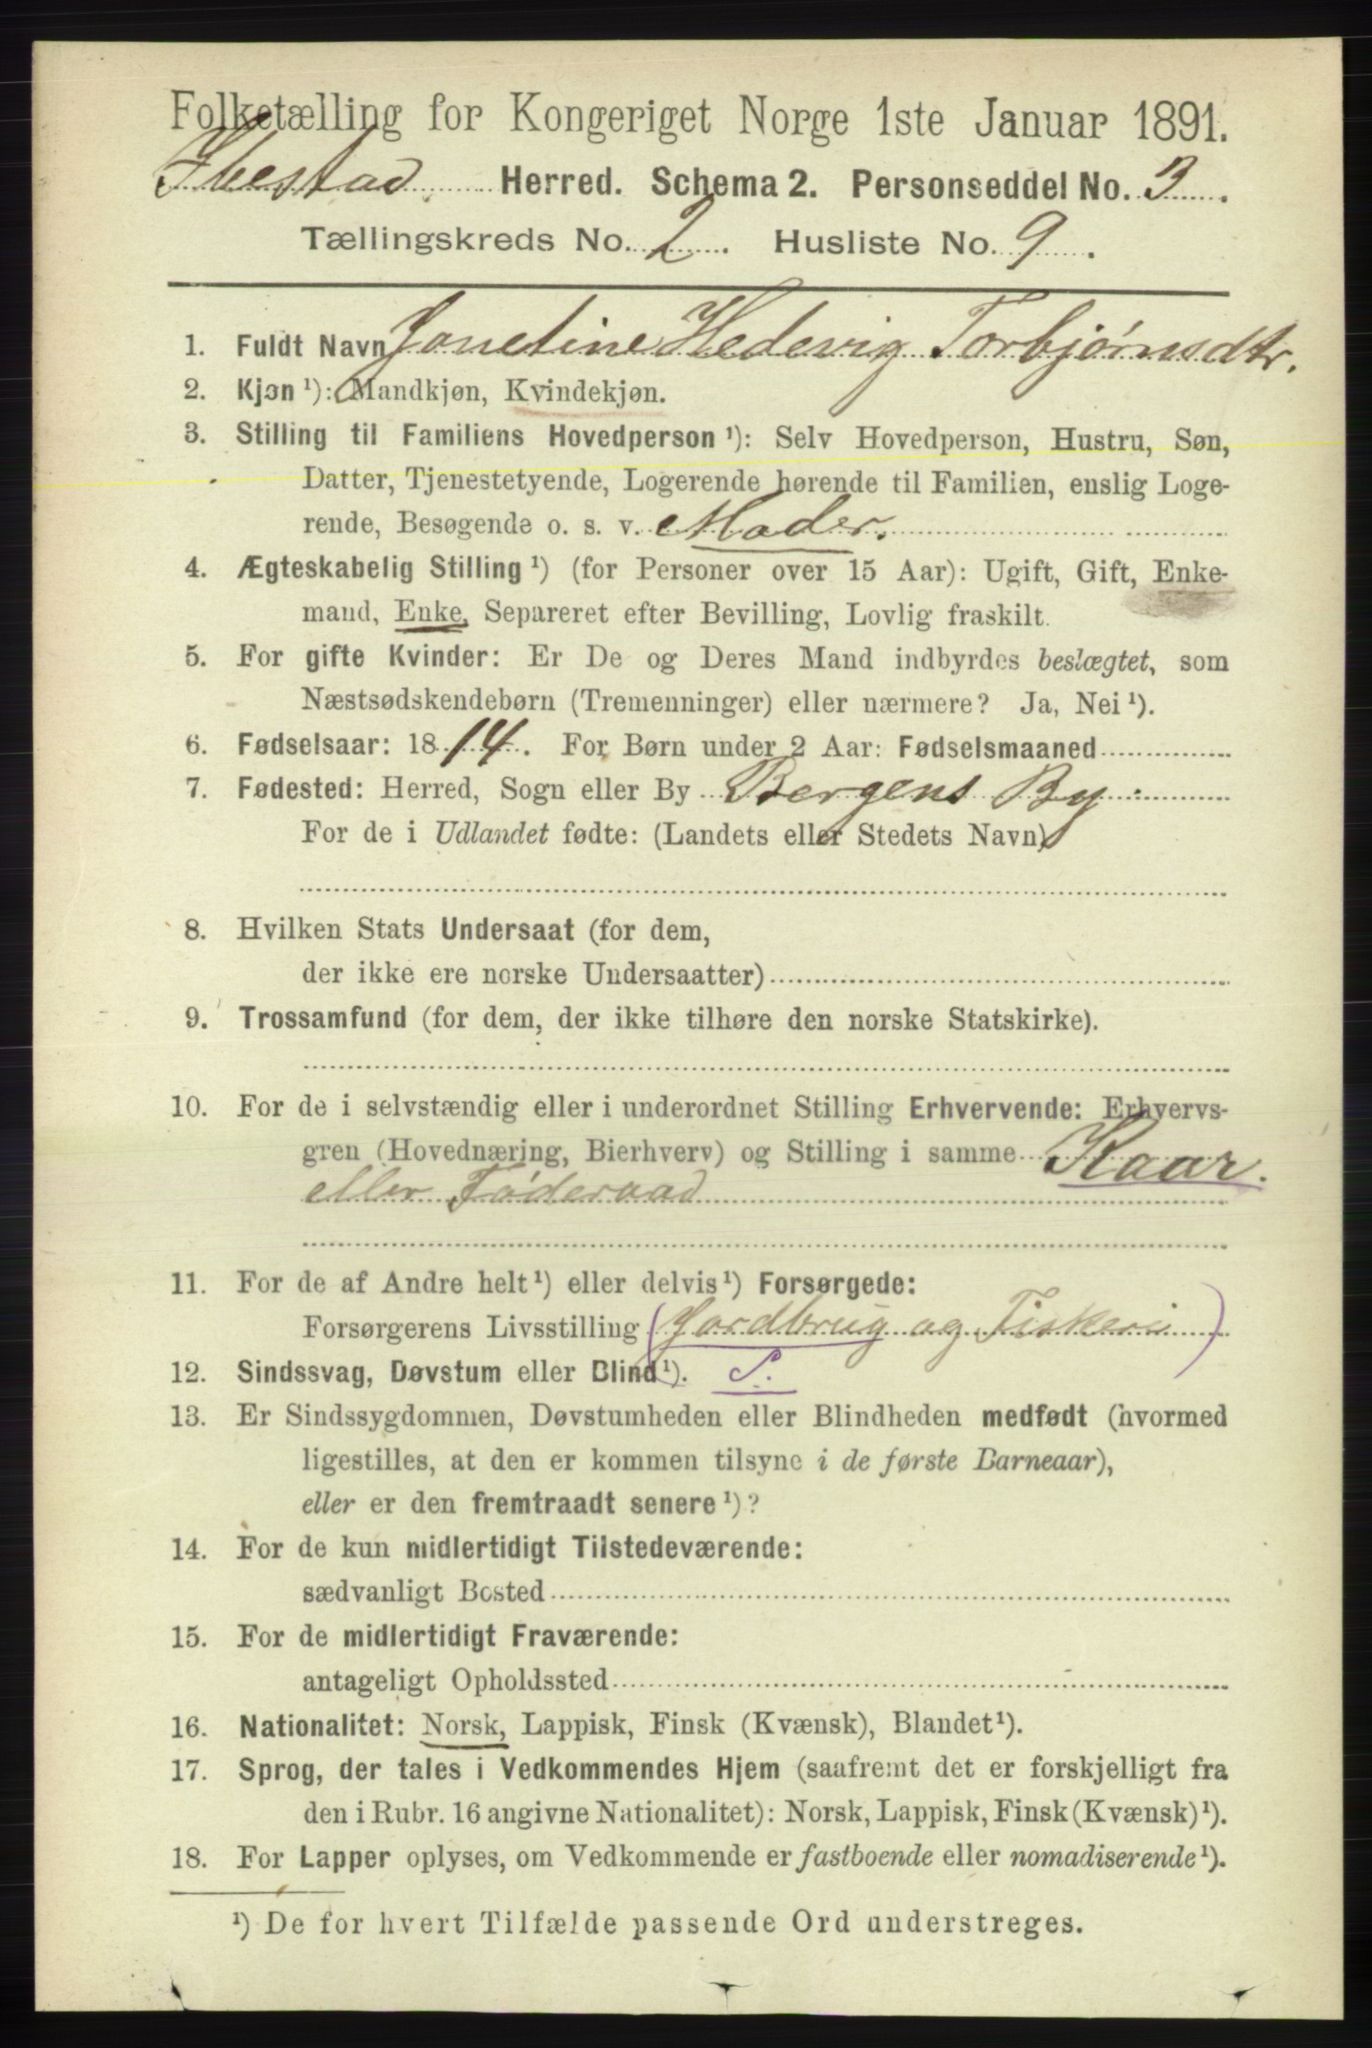 Folketælling for Kongeriget Norge 1ste Januar 1891.
Ibestad Herred. Schema 2. Personseddel No. 3.
Tællingskreds No. 2. Husliste No. 9.
1. Fuldt Navn Jonetine Hedevig Torbjørnsdtr.
2. Kjøn ¹): Mandkjøn, Kvindekjøn.
3. Stilling til Familiens Hovedperson ¹): Selv Hovedperson, Hustru, Søn,
Datter, Tjenestetyende, Logerende hørende til Familien, enslig Loge-
rende, Besøgende o. s. v. Moder.
4. Ægteskabelig Stilling ¹) (for Personer over 15 Aar): Ugift, Gift, Enke-
mand, Enke, Separeret efter Bevilling, Lovlig fraskilt.
5. For gifte Kvinder: Er De og Deres Mand indbyrdes beslægtet, som
Næstsødskendebørn (Tremenninger) eller nærmere? Ja, Nei ¹).
6. Fødselsaar: 1814. For Børn under 2 Aar: Fødselsmaaned
7. Fødested: Herred, Sogn eller By Bergens By.
For de i Udlandet fødte: (Landets eller Stedets Navn)
8. Hvilken Stats Undersaat (for dem,
der ikke ere norske Undersaatter)
9. Trossamfund (for dem, der ikke tilhøre den norske Statskirke).
10. For de i selvstændig eller i underordnet Stilling Erhvervende: Erhvervs-
gren (Hovednæring, Bierhverv) og Stilling i samme Kaar.
eller Føderaad
11. For de af Andre helt ¹) eller delvis ¹) Forsørgede:
Forsørgerens Livsstilling (Jordbrug og Fiskeri)
12. Sindssvag, Døvstum eller Blind ¹). S.
13. Er Sindssygdommen, Døvstumheden eller Blindheden medfødt (hvormed
ligestilles, at den er kommen tilsyne i de første Barneaar),
eller er den fremtraadt senere ¹)?
14. For de kun midlertidigt Tilstedeværende:
sædvanligt Bosted
15. For de midlertidigt Fraværende:
antageligt Opholdssted
16. Nationalitet: Norsk, Lappisk, Finsk (Kvænsk), Blandet ¹).
17. Sprog, der tales i Vedkommendes Hjem (saafremt det er forskjelligt fra
den i Rubr. 16 angivne Nationalitet): Norsk, Lappisk, Finsk (Kvænsk) ¹).
18. For Lapper oplyses, om Vedkommende er fastboende eller nomadiserende ¹).
¹) De for hvert Tilfælde passende Ord understreges.